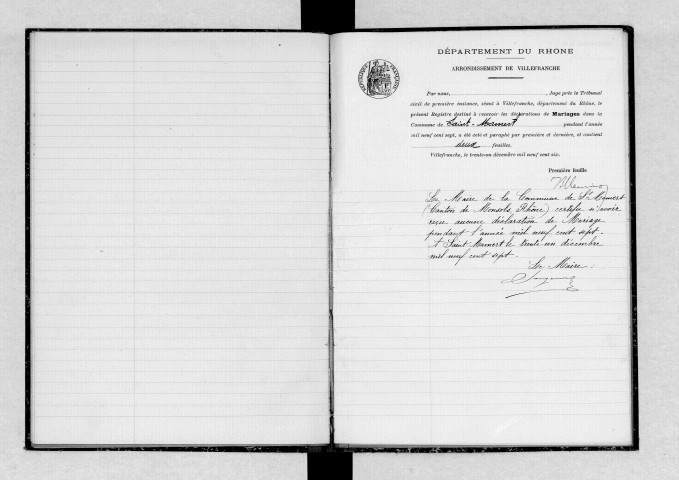 DÉPARTEMENT DU RHONE
ARRONDISSEMENT DE VILLEFRANCHE
RÉPUBLIQUE FRANÇAISE
Par nous, , Juge près le Tribunal
civil de première instance, séant à Villefranche, département du Rhône, le
présent Registre destiné à recevoir les déclarations de Mariages dans la
Commune de Saint-Mamert pendant l'année
mil neuf cent sept, a été coté et paraphé par première et dernière, et contient
deux feuilles.
Villefranche, le trente-un décembre mil neuf cent six.
Première feuille
Le Maire de la Commune de St Mamert
(Canton de Monsols Rhône) certifie n'avoir
reçu aucune déclaration de Mariage
pendant l'année mil neuf cent sept.
A Saint-Mamert le trente un décembre
mil neuf cent sept.
Le Maire :